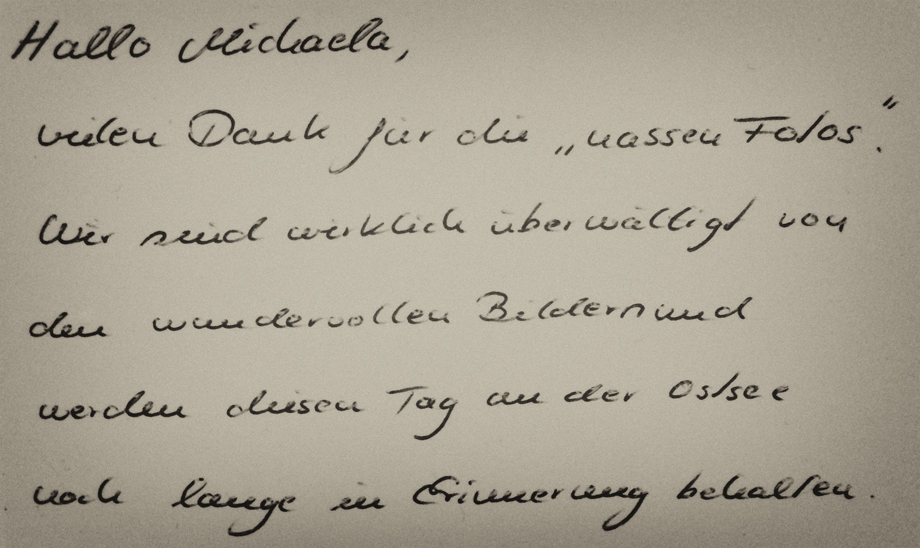 Hallo Michaela,
vielen Dank für die „nassen Fotos“.
Wir sind wirklich überwältigt von
den wundervollen Bildern und
werden diesen Tag an der Ostsee
noch lange in Erinnerung behalten.